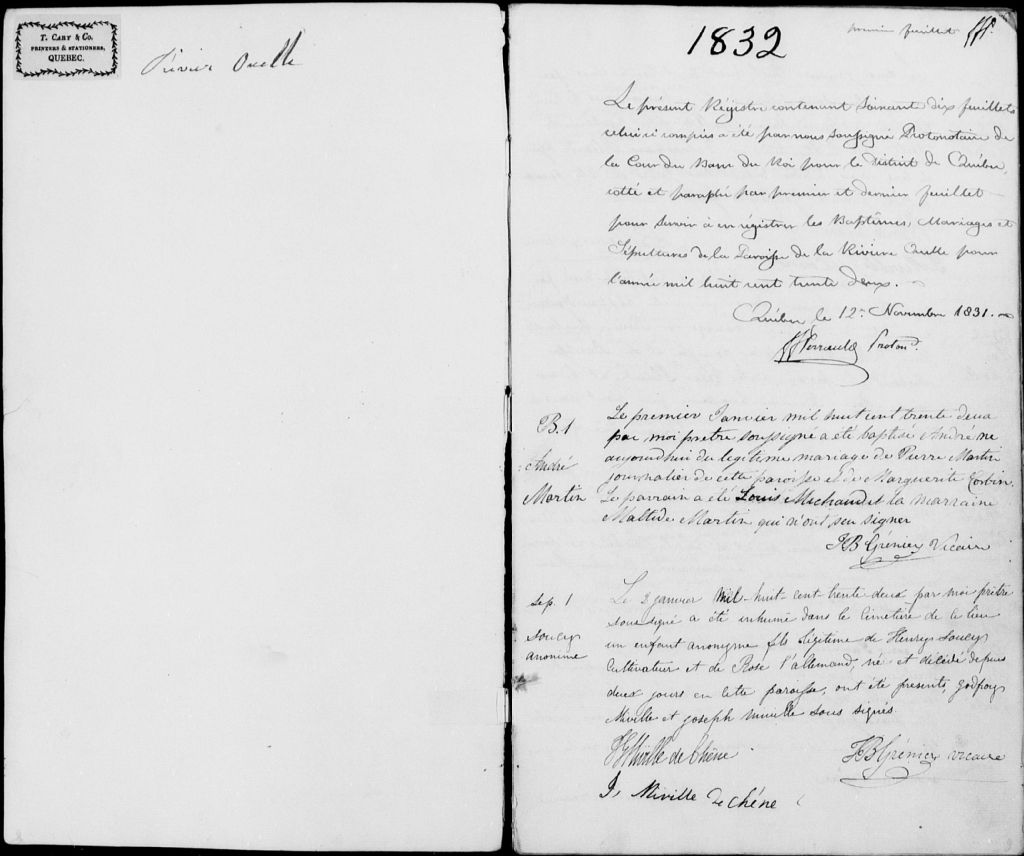 T. CARY & Co.
PRINTERS & STATIONERS,
QUEBEC.
Rivier Ouelle
1832
premier feuillet
Le présent Régistre contenant Soixante dix feuillets
celui ci compris a été par nous soussigné Protonotaire de
la Cour du Banc du Roi pour le District de Québec,
cotté et paraphé par premier et dernier feuillet
pour servir à enrégistrer les Baptêmes, Mariages et
Sépultures de la Paroisse de la Rivière Ouelle pour
l'année mil huit cent trente deux.
Québec le 12e Novembre 1831.
Perrault Proton.
B. 1
André
Martin
Le premier Janvier mil huit cent trente deux
par moi pretre soussigné a été baptisé André né
aujourdhui du legitime mariage de Pierre Martin
journalier de cette paroisse et de Marguerite Corbin.
Le parrain a été Louis Michaud et la marraine
Maltide Martin qui n'ont seu signer
HB Grénier Vicaire
Sep. 1
Soucy
anonime
Le 2 janvier mil-huit-cent-trente deux par moi prêtre
soussigné a été inhumé dans le cimetière de ce lieu
un enfant anonyme fils légitime de Henry Soucy
Cultivateur et de Rose l'allemand, né et décédé depuis
deux jours en cette paroisse, ont été présents, godfroy
Miville et joseph miville sous signés.
Miville de Chêne
HB Grénier vicaire
Js Miville de chéne